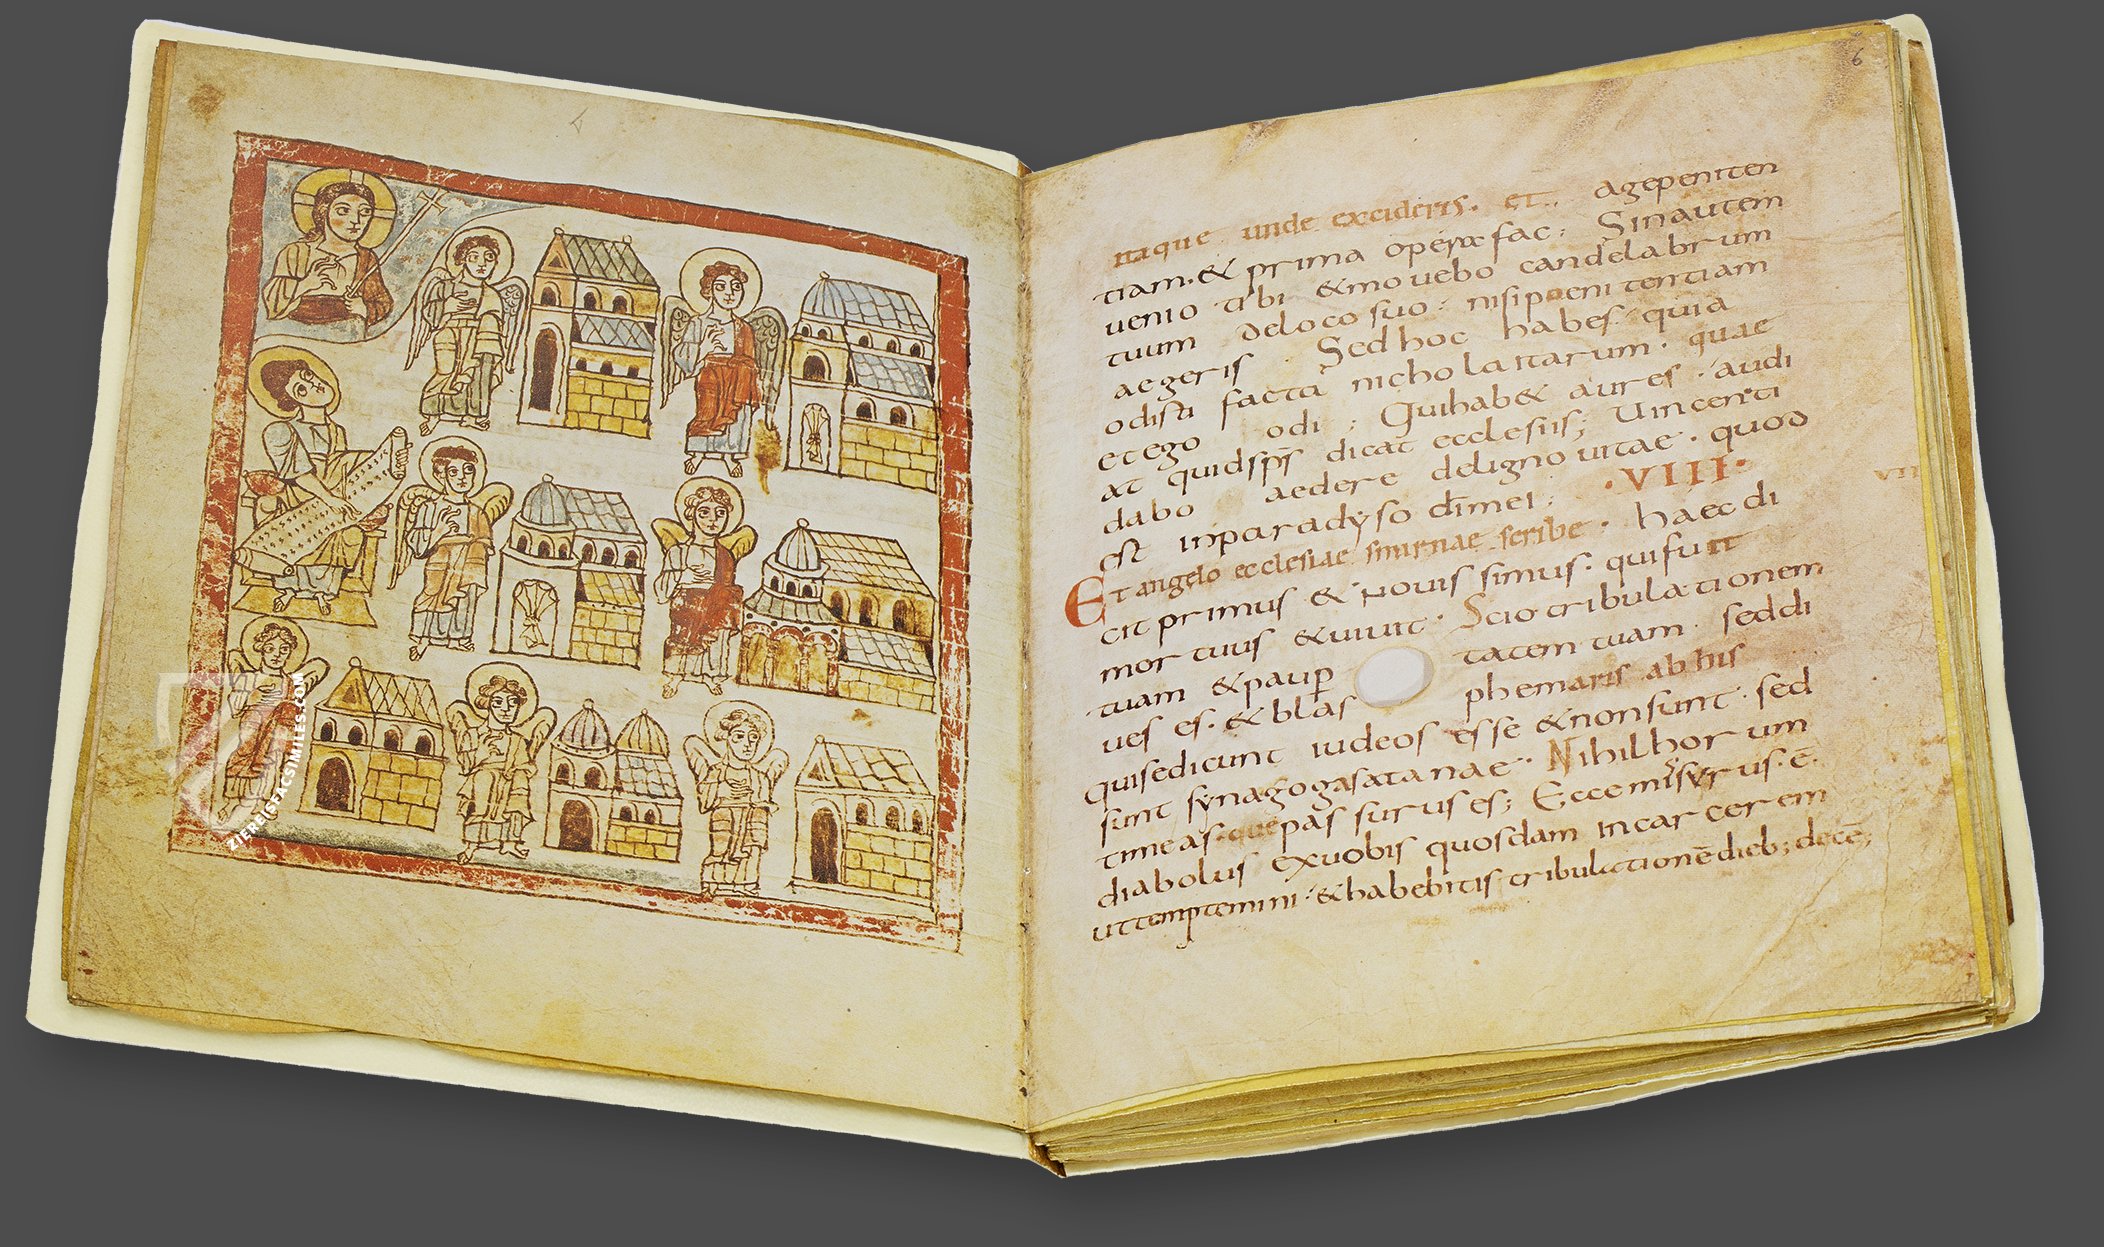 ZIEREIS FACSIMILES.COM
6
itaque unde excideris. et agepeniten
tiam. & prima opera fac: Sinautem
uenio tibi & mouebo candelabrum
tuum deloco suo: nisipoenitentiam
aegeris Sed hoc habes. quia
odisti facta nicholaitarum. quae
et ego odi; Quihab& aures. audi
at quid sp̄s dicat ecclesiis; Uincenti
dabo aedere deligno uitae. quod
est inparadyso dīmei: .VIII.
VII
Et angelo ecclesiae smirnae scribe. haec di
cit primus & nouissimus. qui fuit
mortuus & uiuit. Scio tribulationem
tuam & paup tatem tuam. sed di
ues es. & blas phemaris ab his
quisedicunt iudeos esse & non sunt. sed
sunt synagoga satanae. Nihil horum
timeas. que passurus es; Ecce misurus. ē.
diabolus exuobis quosdam incarcerem
uttemptemini. & habebitis tribulationē dieb; decē;